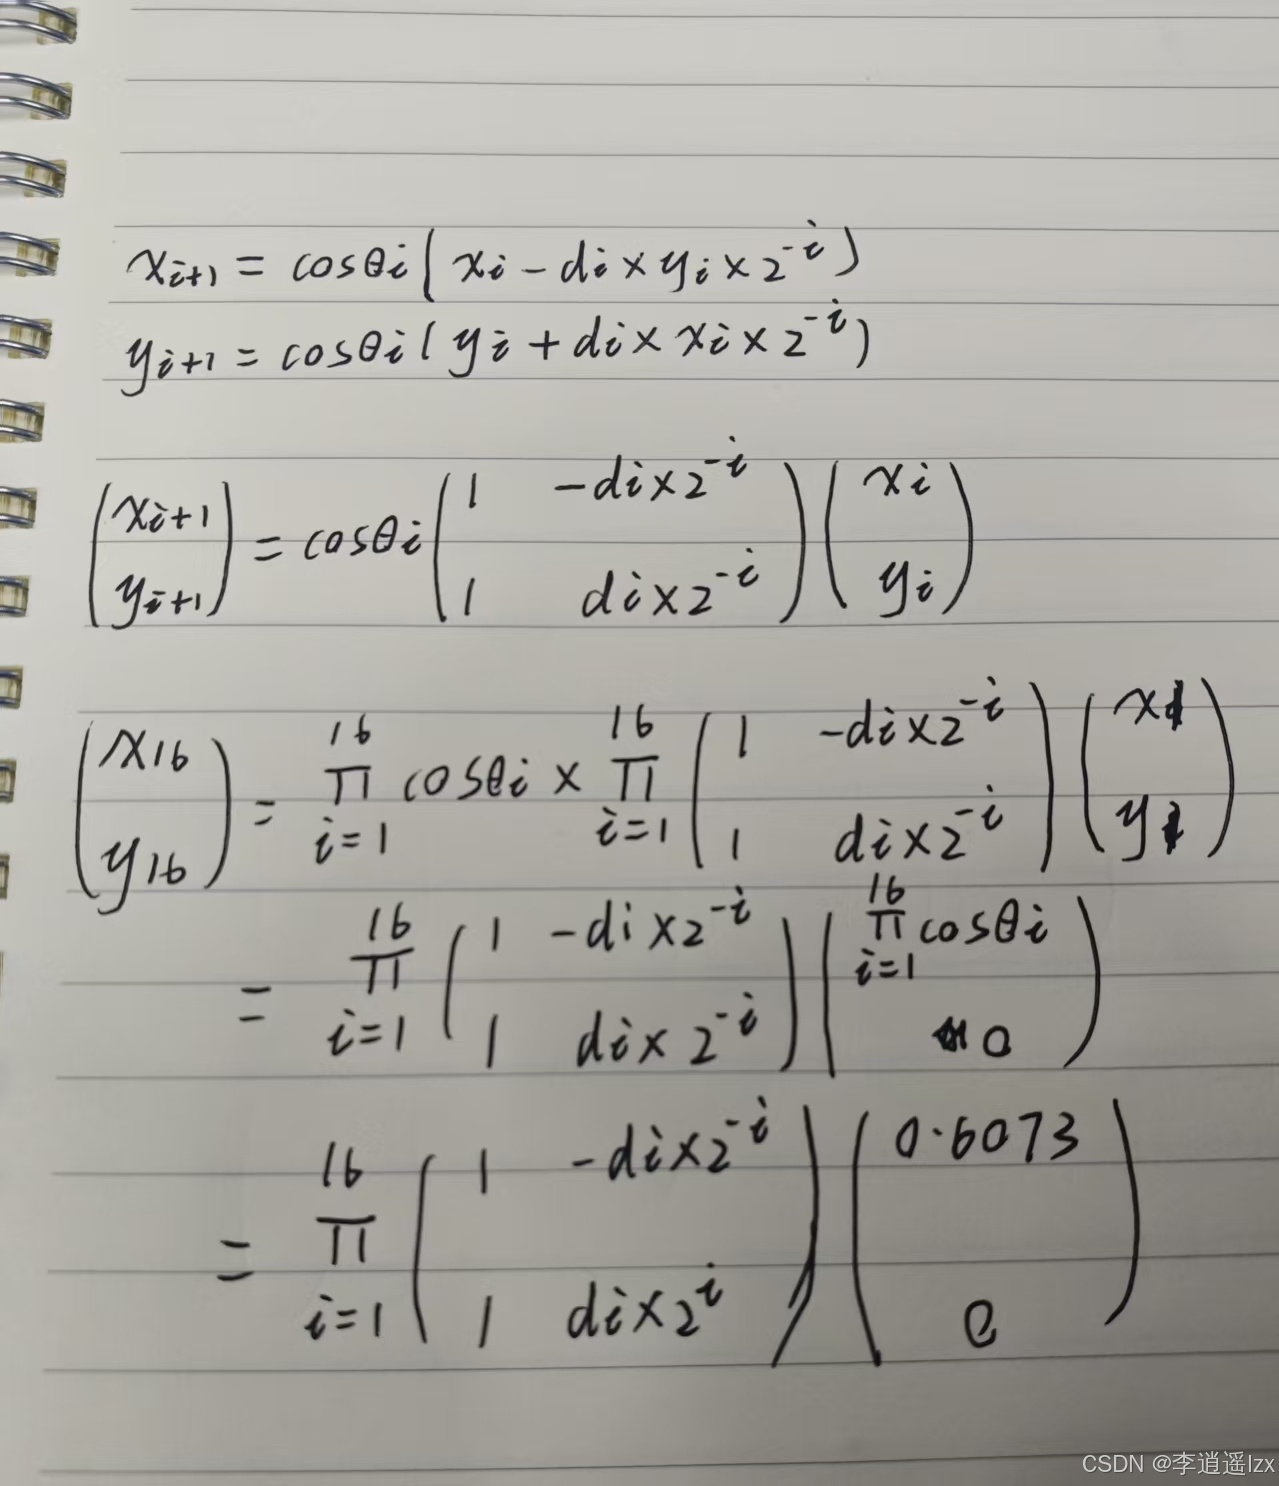 x_{i+1} = cosθi ( xi - di × yi × 2^{-i} )
y_{i+1} = cosθi ( yi + di × xi × 2^{-i} )
\begin{pmatrix} x_{i+1} \\ y_{i+1} \end{pmatrix} = cosθi \begin{pmatrix} 1 & -di×2^{-i} \\ 1 & di×2^{-i} \end{pmatrix} \begin{pmatrix} xi \\ yi \end{pmatrix}
\begin{pmatrix} x_{16} \\ y_{16} \end{pmatrix} = \prod_{i=1}^{16} cosθi × \prod_{i=1}^{16} \begin{pmatrix} 1 & -di×2^{-i} \\ 1 & di×2^{-i} \end{pmatrix} \begin{pmatrix} x1 \\ y1 \end{pmatrix}
= \prod_{i=1}^{16} \begin{pmatrix} 1 & -di×2^{-i} \\ 1 & di×2^{-i} \end{pmatrix} \begin{pmatrix} \prod_{i=1}^{16} cosθi \\ 0 \end{pmatrix}
= \prod_{i=1}^{16} \begin{pmatrix} 1 & -di×2^{-i} \\ 1 & di×2^{i} \end{pmatrix} \begin{pmatrix} 0.6073 \\ 0 \end{pmatrix}
CSDN @李逍遥lzx